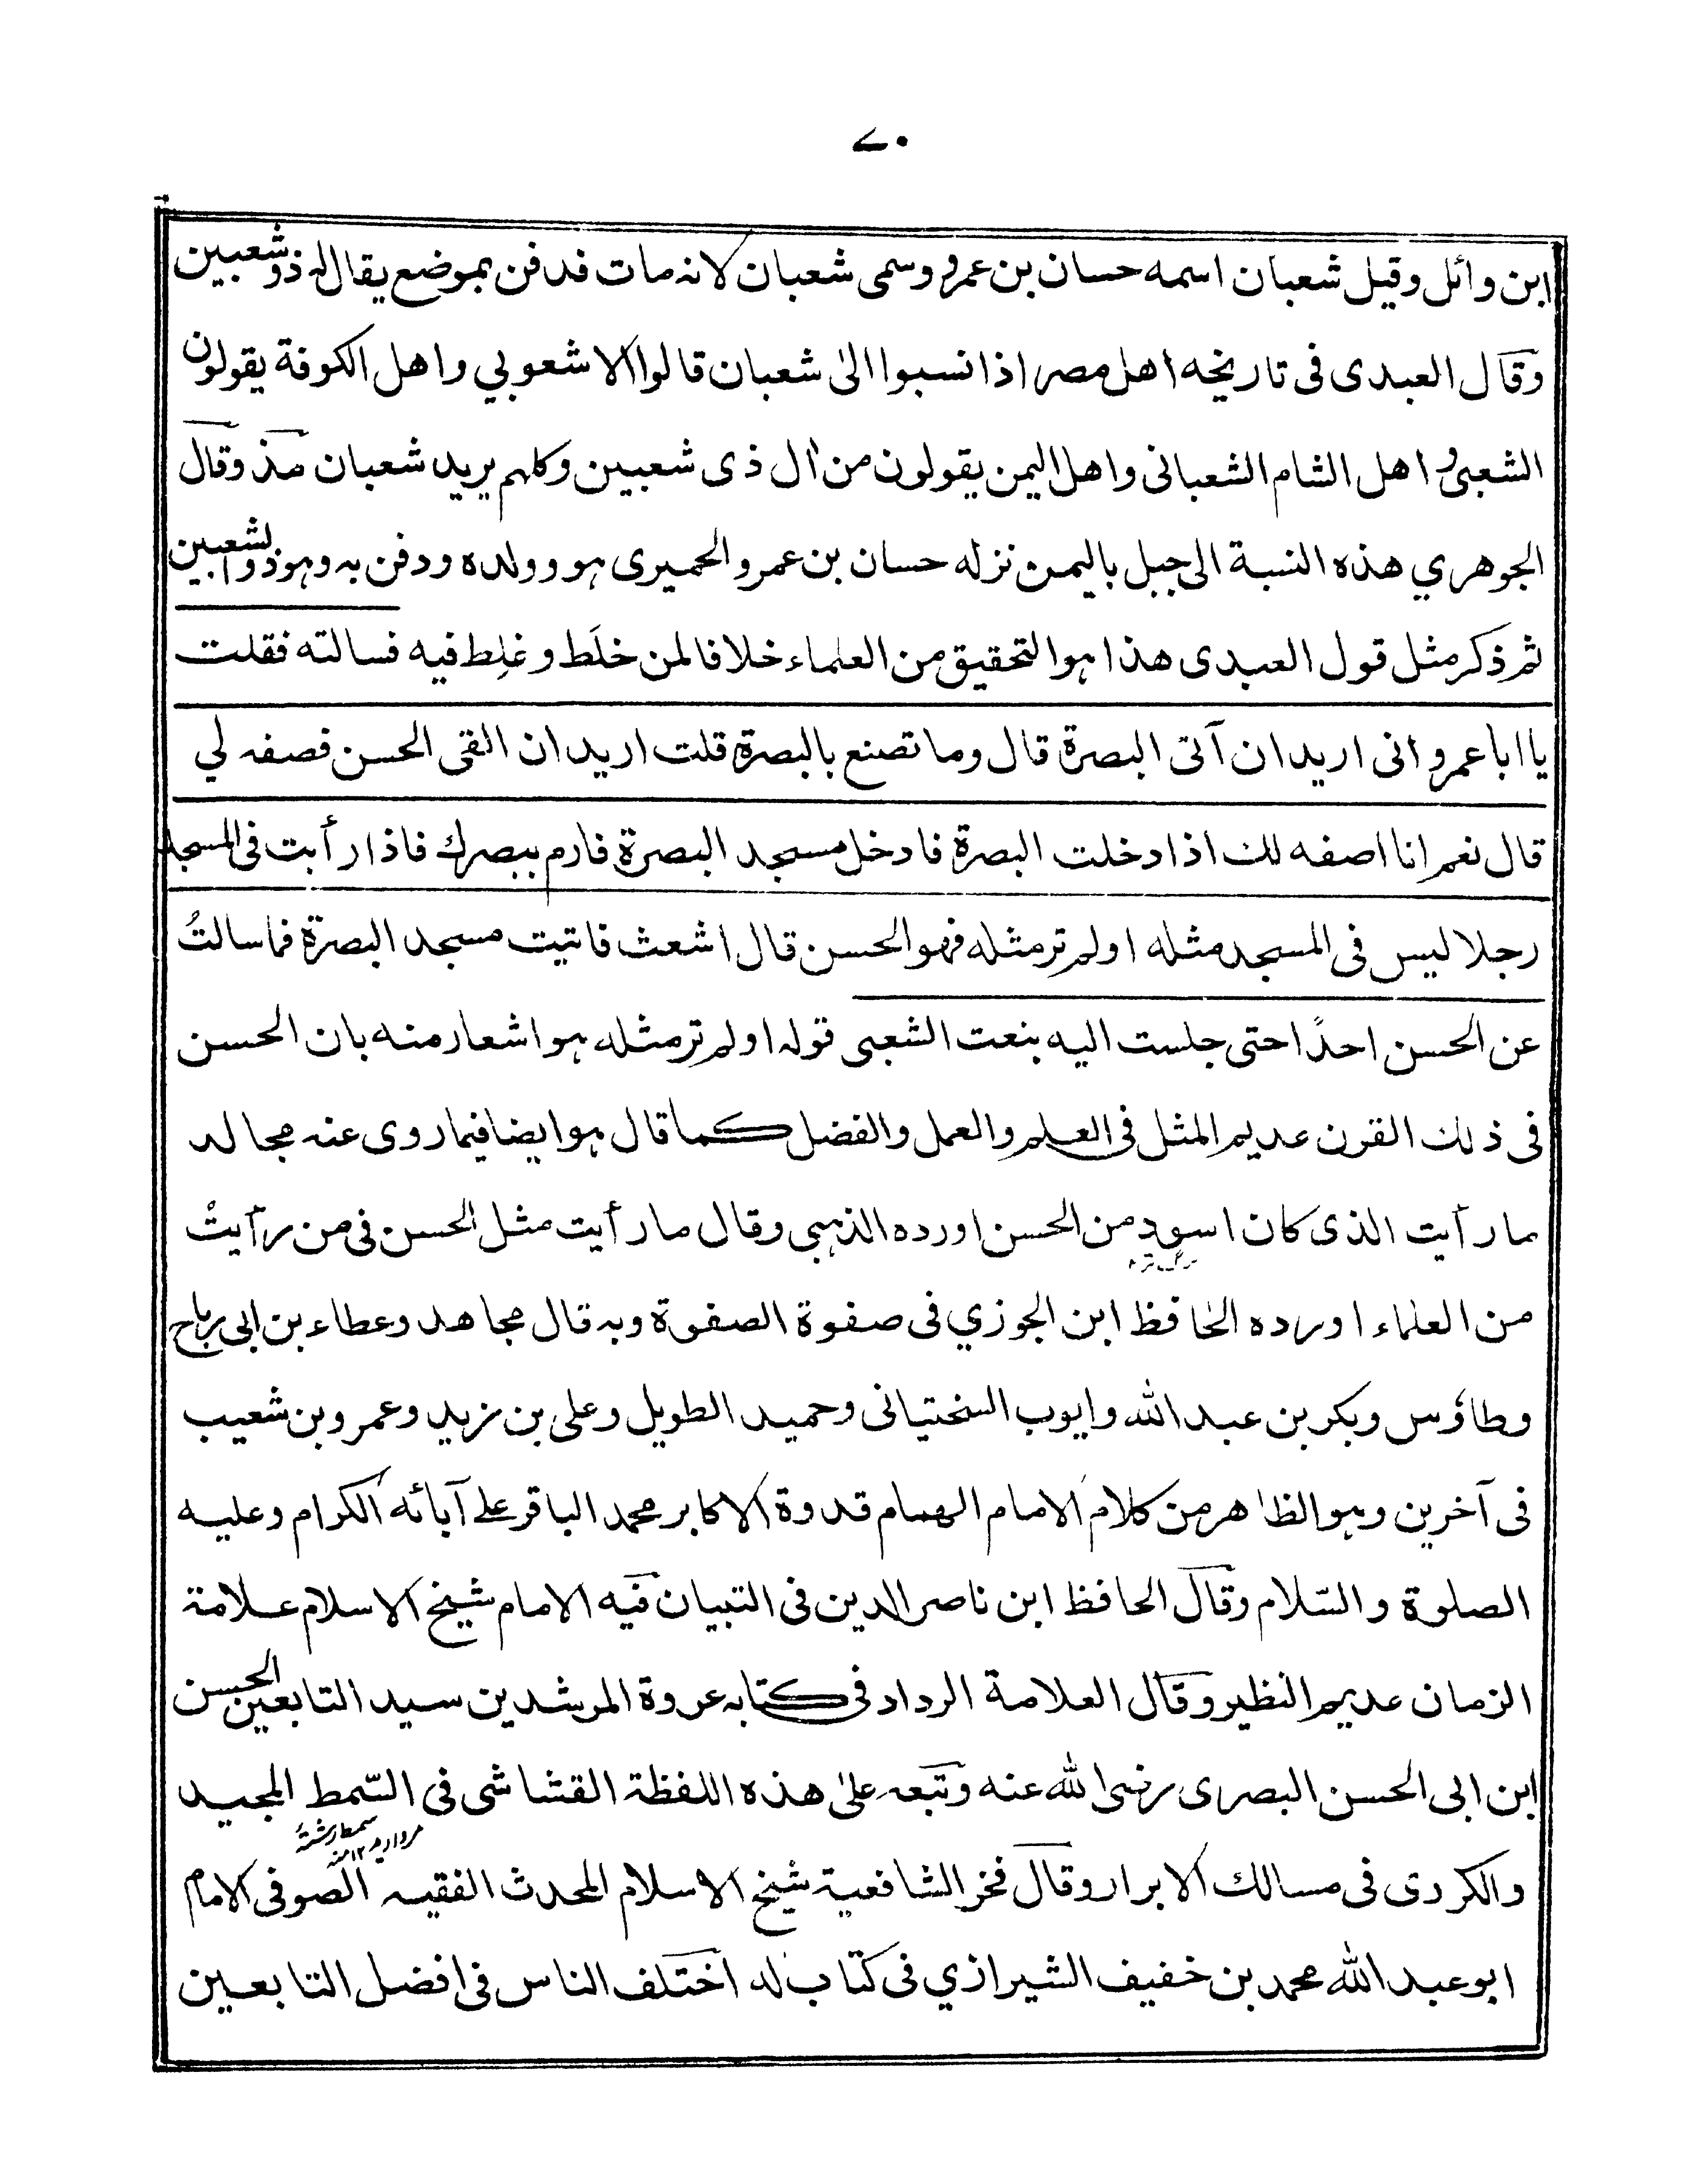 ۷۰
ابن وائل وقيل شعبان اسمه حسان بن عمرو وسمى شعبان لانه مات فدفن بموضع يقال له ذو شعبين
وقال العبدى فى تاريخه اهل مصر اذا نسبوا الىٰ شعبان قالوا الاشعوبي واهل الكوفة يقولون
الشعبى و اهل الشام الشعبانى واهل اليمن يقولون من اٰل ذى شعبين وكلهم يريد شعبان هذ وقال
الجوهري هذه النسبة الى جبل باليمن نزله حسان بن عمرو الحميرى هو وولده ودفن به وهو ذو الشعبين
ثم ذكر مثل قول العبدى هذا هو التحقيق من العلماء خلافا لمن خلَط وغلِط فيه فسالته فقلت
يا ابا عمرو انى اريد ان آتى البصرة قال وما تصنع بالبصرة قلت اريد ان القى الحسن فصفه لي
قال نعم انا اصفه لك اذا دخلت البصرة فادخل مسجد البصرة فارم ببصرك فاذا رأيت فى المسجد
رجلا ليس فى المسجد مثله اولم تر مثله فهو الحسن قال اشعث فاتيت مسجد البصرة فما سالتُ
عن الحسن احدًا حتى جلست اليه بنعت الشعبى قوله اولم تر مثله هو اشعار منه بان الحسن
فى ذلك القرن عديم المثل فى العلم والعمل والفضل كما قال هو ايضا فيما روى عنه مجالد
ما رأيت الذى كان اسود من الحسن اورده الذهبى وقال ما رأيت مثل الحسن فى من رأيتُ
من العلماء اورده الحافظ ابن الجوزي فى صفوة الصفوة وبه قال مجاهد وعطاء بن ابى رباح
وطاؤس وبكر بن عبد الله وايوب السختيانى وحميد الطويل وعلى بن زيد وعمرو بن شعيب
فى آخرين وهو الظاهر من كلام الامام الهمام قدوة الاكابر محمد الباقر على آبائه الكرام وعليه
الصلوة والسّلام وقال الحافظ ابن ناصر الدين فى التبيان فيه الامام شيخ الاسلام علامة
الزمان عديم النظير وقال العلامة الرداد فى كتابه عروة المرشدين سيد التابعين الحسن
ابن ابى الحسن البصرى رضى الله عنه وتبعه علىٰ هذه اللفظة القشاشى فى السّمط المجيد
سمط رشتهٔ
مروارید ۱۲ منه
والكردى فى مسالك الابرار وقال فخر الشافعية شيخ الاسلام المحدث الفقيه الصوفى الامام
ابو عبد الله محمد بن خفيف الشيرازي فى كتاب له اختلف الناس فى افضل التابعين